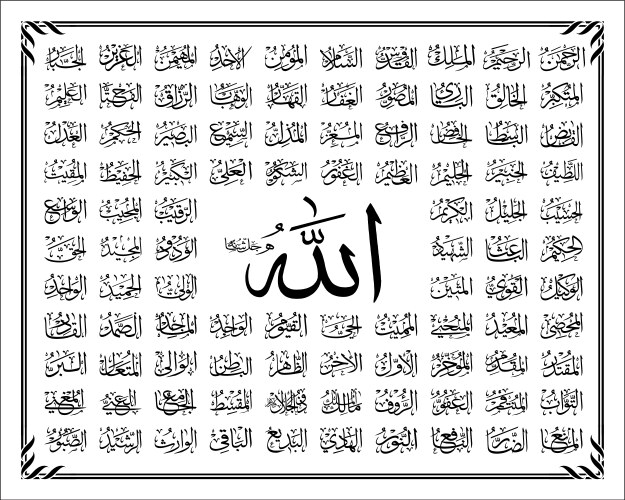 الرحمن الرحيم الملك القدوس السلام المؤمن الاحد المهيمن العزيز الجبار
المتكبر الخالق البارئ المصور الغفار القهار الوهاب الرزاق الفتاح العليم
القابض الباسط الخافض الرافع المعز المذل السميع البصير الحكم العدل
اللطيف الخبير الحليم العظيم الغفور الشكور العلي الكبير الحفيظ المقيت
الحسيب الجليل الكريم الرقيب المجيب الواسع
الحكيم الباعث الشهيد الودود المجيد الحق
الله
الوكيل القوي المتين الولي الحميد الواحد
المحصي المعيد المحيي المميت الحي القيوم الواحد الماجد الصمد القادر
المقتدر المقدم المؤخر الأول الآخر الظاهر الباطن الوالي المتعال البر
التواب المنتقم العفو الرؤوف مالك ذو الجلال المقسط الجامع الغني المغني
المانع الضار النافع النور الهادي البديع الباقي الوارث الرشيد الصبور